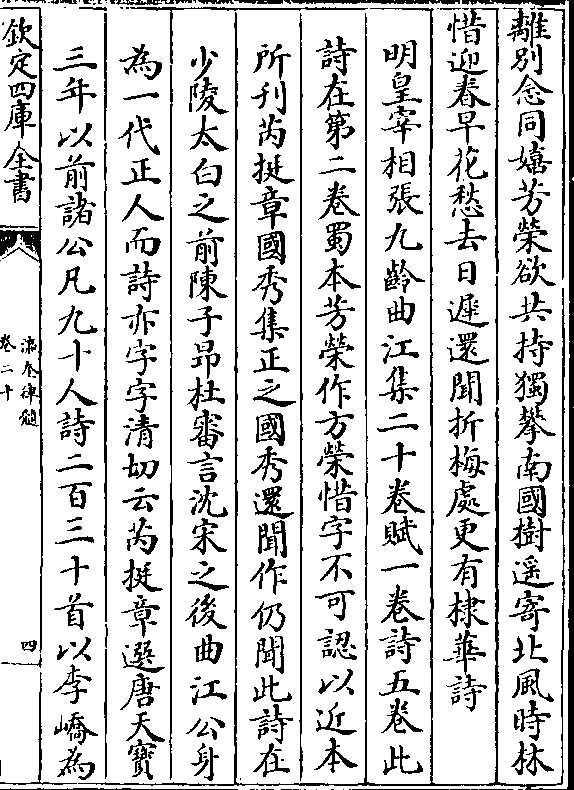 離别念同嬉芳榮欲共持獨攀南國樹遥寄北風時林
惜迎春早花愁去日遲還聞折梅處更有棣華詩
明皇宰相張九齡曲江集二十卷賦一卷詩五卷此
詩在第二卷蜀本芳榮作方榮惜字不可認以近本
所刊芮挺章國秀集正之國秀還聞作仍聞此詩在
少陵太白之前陳子昂杜審言沈宋之後曲江公身
為一代正人而詩亦字字清切云芮挺章選唐天寶
三年以前諸公凡九十人詩二百三十首以李嶠為
欽定四庫全書
瀛奎律髓
卷二十
四